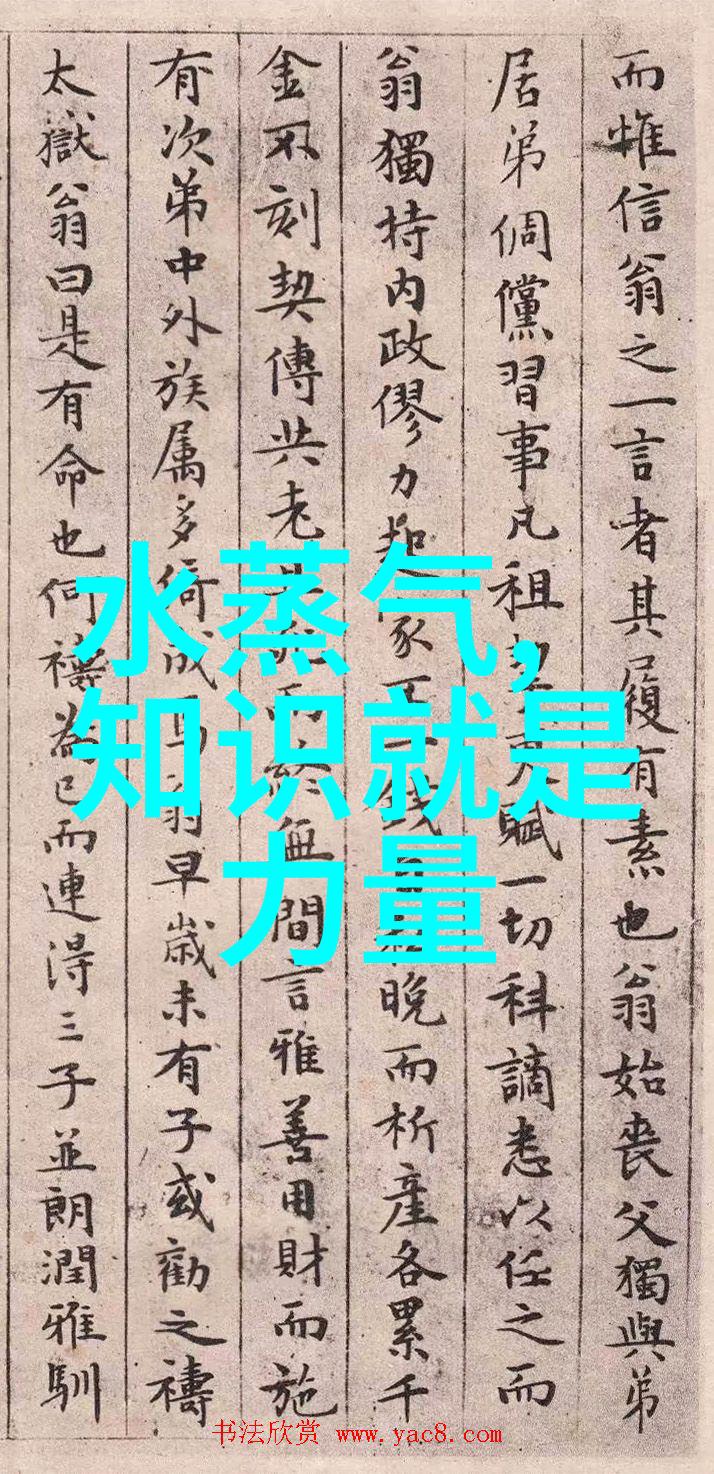 而惟信翁之一言者其履有素也翁始喪父獨與弟
居弟倜儻習事凡租更賦一切科謫悉以任之而
翁獨持内政僇力起家一錢晚而析産各累千
金不刻契傅共老而終無間言雅善用財而施
有次弟中外族属多倚成翁早歲未有子或勸之禱
太嶽翁曰是有命也何禱為已而連得三子並朗潤雅馴
水蒸气,
知识就是
力量
书法欣赏 www.yac8.com